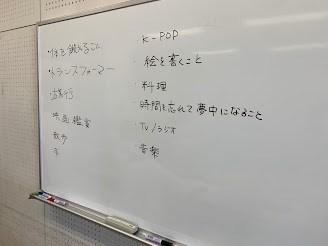 ・体を鍛えること
・トランスフォーマー
旅行
映画鑑賞
散歩
K-POP
・絵を書くこと
・料理
・時間を忘れて夢中になること
・TV/ラジオ
・音楽